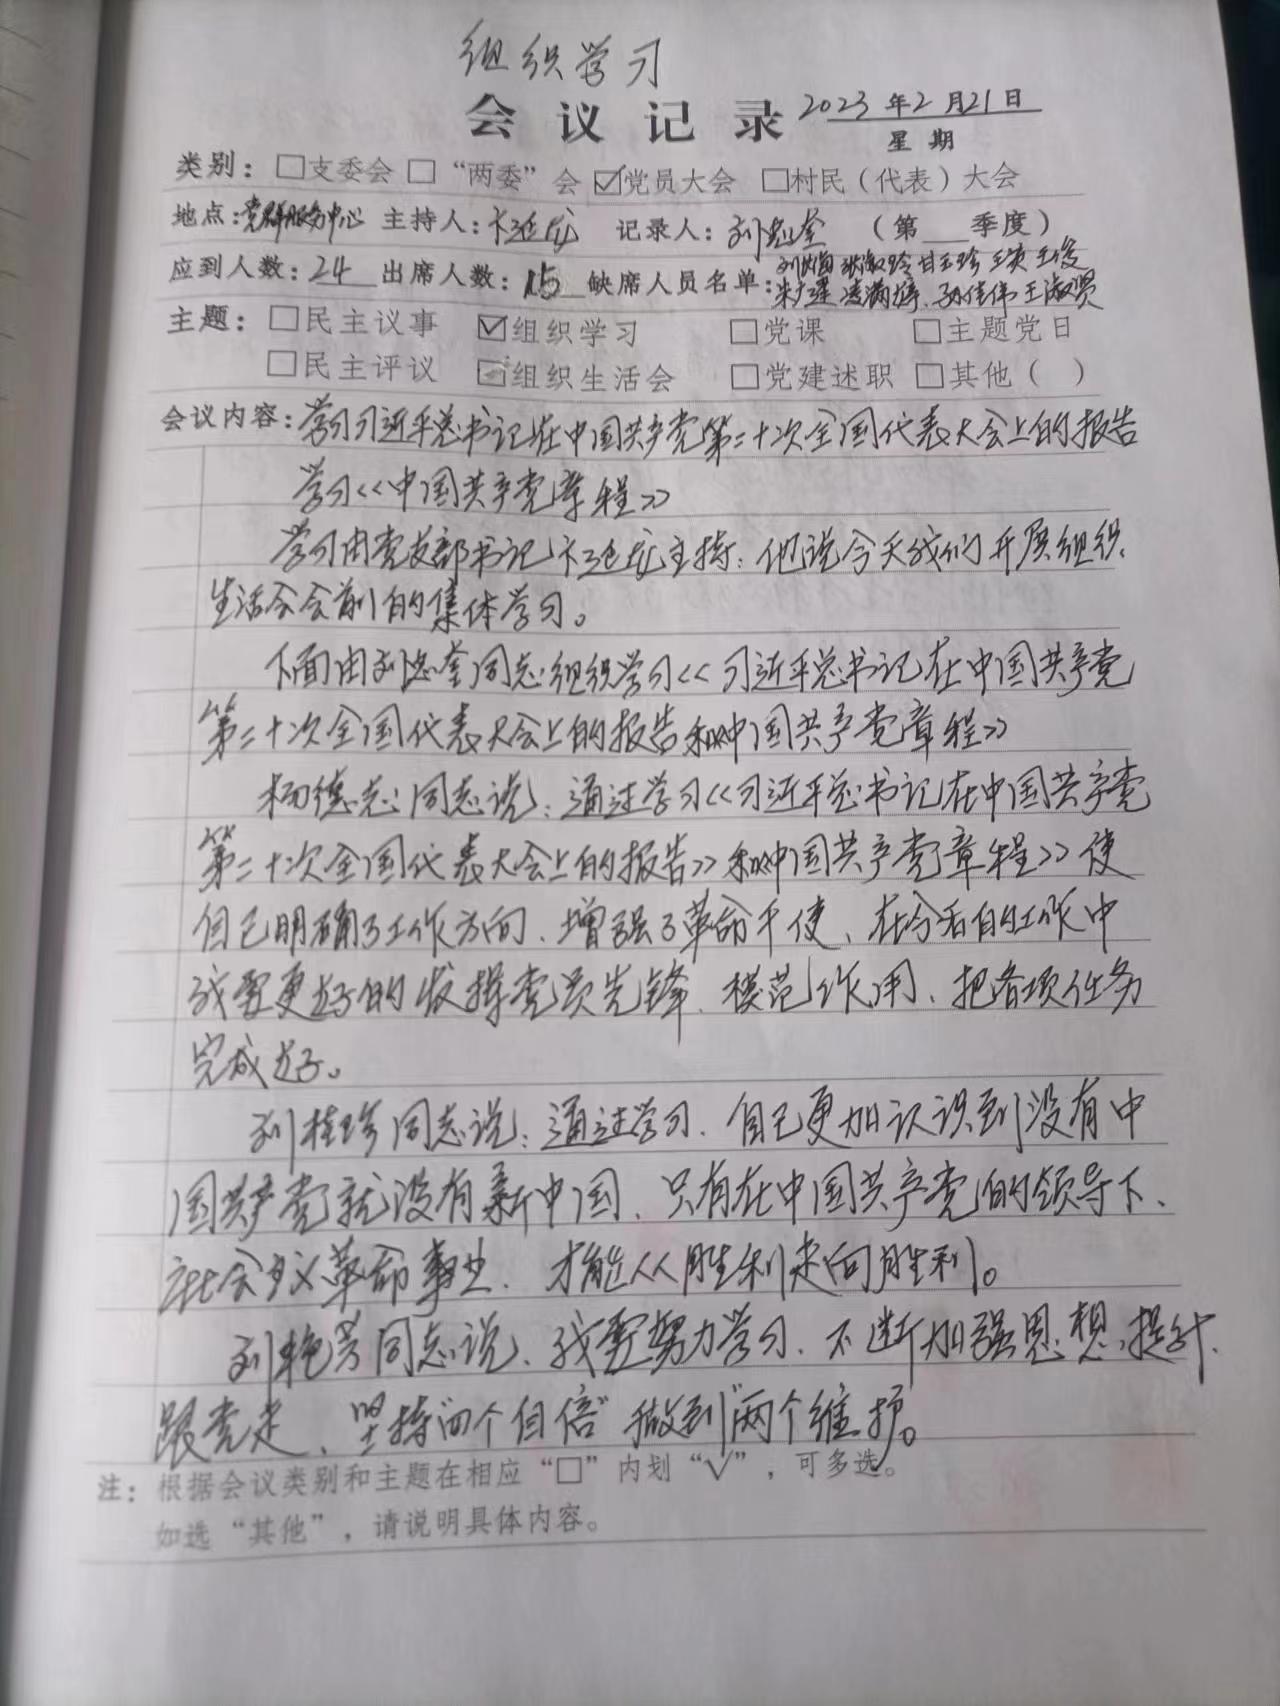 组织学习
会议记录 2023年2月21日
星期
类别：□支委会 □“两委”会 ☑党员大会 □村民（代表）大会
地点：党群服务中心 主持人：卞延龙 记录人：刘志奎 （第 季度）
应到人数：24 出席人数：15 缺席人员名单：
朱广星 凌满婷、孙伟伟 王淑贤
主题：□民主议事 ☑组织学习 □党课 □主题党日
□民主评议 □组织生活会 □党建述职 □其他（ ）
会议内容：学习习近平总书记在中国共产党第二十次全国代表大会上的报告
学习《中国共产党章程》
学习由党支部书记卞延龙主持：他说今天我们开展组织
生活会会前的集体学习。
下面由刘志奎同志组织学习《习近平总书记在中国共产党
第二十次全国代表大会上的报告和《中国共产党章程》
杨德志同志说：通过学习《习近平总书记在中国共产党
第二十次全国代表大会上的报告》和《中国共产党章程》使
自己明确了工作方向、增强了革命干使、在今后的工作中
我要更好的发挥党员先锋、模范作用、把各项任务
完成好。
刘桂珍同志说：通过学习、自己更加认识到没有中
国共产党就没有新中国、只有在中国共产党的领导下、
社会主义革命事业、才能从胜利走向胜利。
刘艳芳同志说、我要努力学习、不断加强思想提升、
跟党走、坚持“四个自信”做到“两个维护。
注：根据会议类别和主题在相应“□”内划“√”，可多选。
如选“其他”，请说明具体内容。